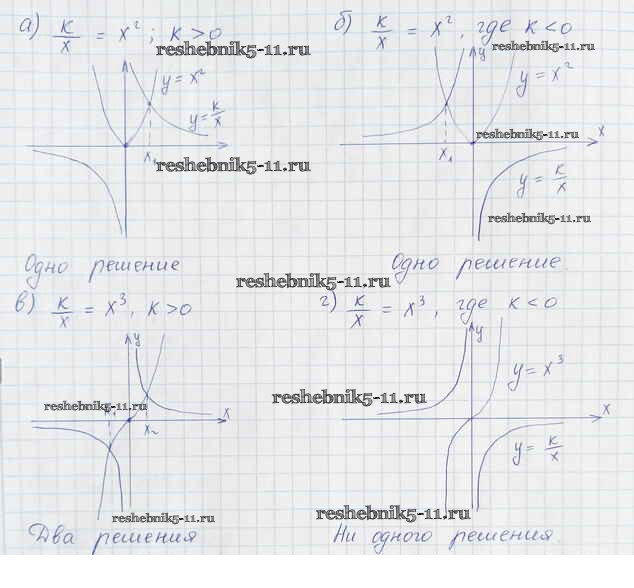 а) к/x = x²; к>0
reshebnik5-11.ru
y = x²
y = к/x
x₁
reshebnik5-11.ru
Одно решение
б) к/x = x², где к<0
reshebnik5-11.ru
y
y = x²
reshebnik5-11.ru
x
x₁
y = к/x
reshebnik5-11.ru
Одно решение
reshebnik5-11.ru
в) к/x = x³, к>0
y
reshebnik5-11.ru
x
x₂
reshebnik5-11.ru
Два решения
г) к/x = x³, где к<0
y
y = x³
reshebnik5-11.ru
x
y = к/x
reshebnik5-11.ru
Ни одного решения